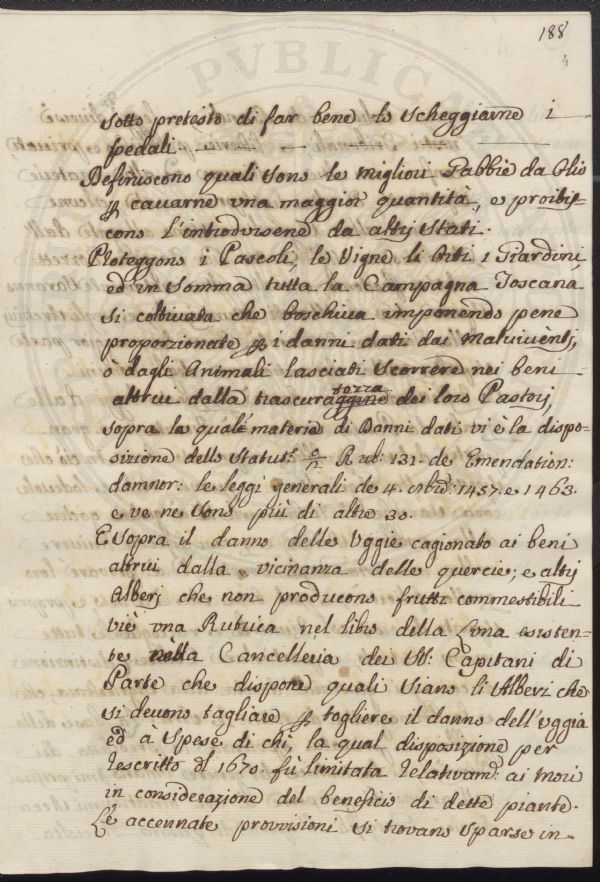 188
sotto pretesto di far bene lo scheggiarne i
pedali.
Definiscono quali sono le migliori Gabbie da Olio
p cavarne una maggior quantità, e proibis-
cono l'introdursene da altrj stati.
Proteggono i Pascoli, le Vigne li Orti i Giardini
ed in somma tutta la Campagna Toscana
si coltivata che boschiva imponendo pene
proporzionate p i danni dati dai malviventj,
ò dagli Animali lasciati scorrere nei beni
altrui dalla trascuraggine dei loro Pastorj,
sopra le quale materie di Danni dati vi è la dispo-
sizione dello Statut.º Rub: 131. de Emendation:
damnor: le leggi generali de 4. 1457. e 1463.
e ve ne sono più di altre 30.
E sopra il danno delle Uggie cagionato ai beni
altrui dalla vicinanza delle quercie, e altrj
Alberj che non producono frutti commestibili
viè una Rubrica nel libro della Luna esisten-
te nella Cancelleria dei SS: Capitani di
Parte che dispone quali siano li Alberi che
si devono tagliare p togliere il danno dell'Uggia
ed à spese di chi, la qual disposizione per
rescritto del 1670. fù limitata relativam: ai mori
in considerazione del beneficio di dette piante.
Le accennate provvisioni si trovano sparse in
PVBLICA